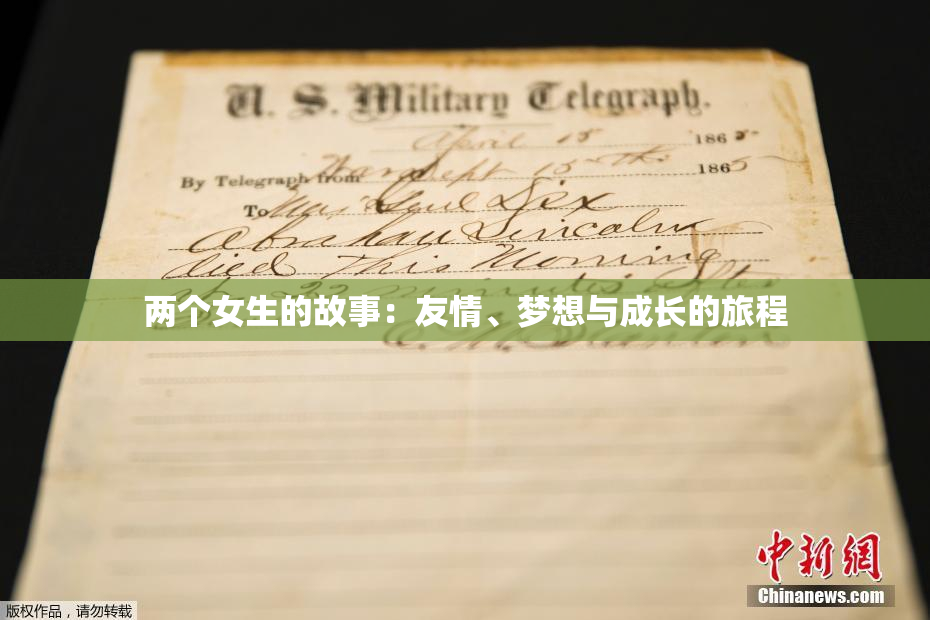 U. S. Military Telegraph.
April 15 1865
By Telegraph from War Dept 15th 1865
To Maj Genl Dix
Abraham Lincoln
died This Morning
at 22 minutes after
两个女生的故事：友情、梦想与成长的旅程
E. M. Stanton
中新網
Chinanews.com
版权作品，请勿转载